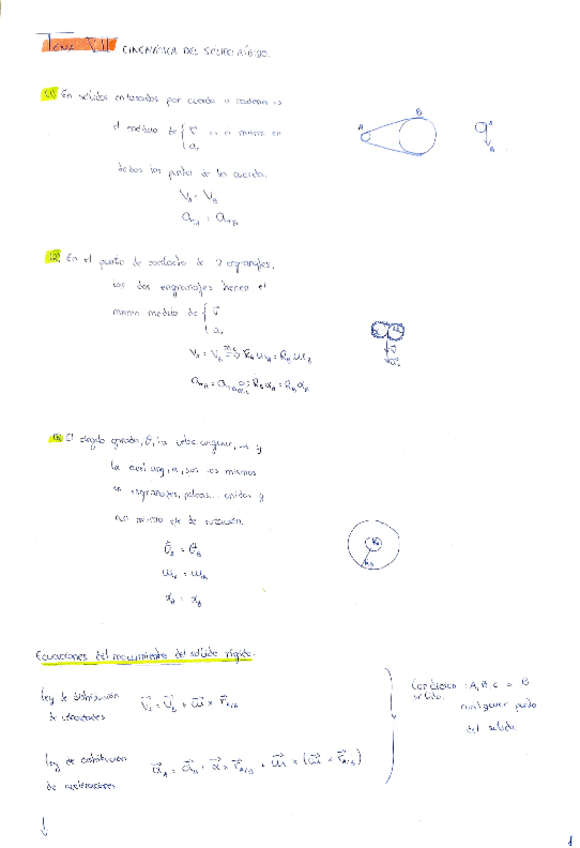 Tema VII CINEMÁTICA DEL SÓLIDO RÍGIDO.
① En sólidos enlazados por cuerda o cadena
el módulo de { v⃗ es el mismo en
aₜ
todos los puntos de la cuerda.
V_A = V_B
a_tA = a_tB
A B
A
B
② En el punto de contacto de 2 engranajes,
los dos engranajes tienen el
mismo módulo de { v⃗
aₜ
V_A = V_B ⇒ R_A ω_A = R_B ω_B
③ El ángulo girado, θ, la veloc angular, ω y
la acel ang, α, son los mismos
en engranajes, poleas... unidos y
un mismo eje de rotación.
θ_A = θ_B
ω_A = ω_B
α_A = α_B
Ecuaciones del movimiento del sólido rígido.
Ley de distribución
de velocidades
V⃗_A = V⃗_B + ω⃗ × r⃗_A/B
Ley de distribución
de aceleraciones
a⃗_A = a⃗_B + α⃗ × r⃗_A/B + ω⃗ × (ω⃗ × r⃗_A/B)
Condición
sólido.
cualquier punto
del sólido
1